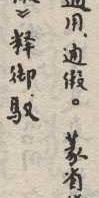 通用，通假。 篆省
》释御驭